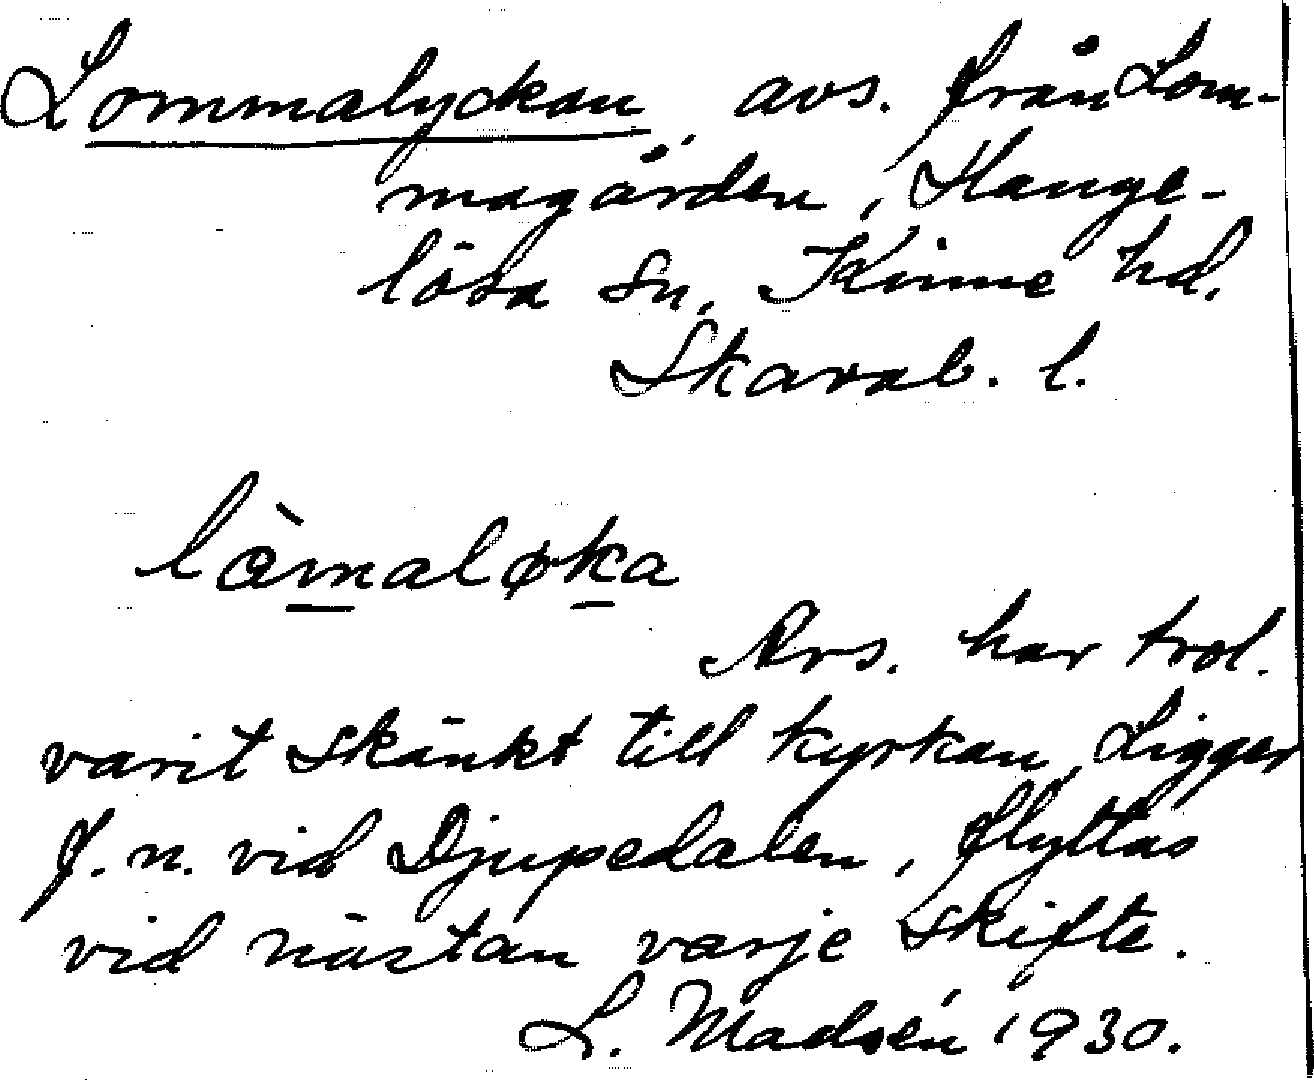 Lommalyckan, avs. från Lom-
magården, Hange-
lösa sn, Kinne hd.
Skarab. l.
lòmaløka
Avs. har trol.
varit skänkt till kyrkan. Ligger
f. n. vid Djupedalen, flyttas
vid nästan varje skifte.
L. Madsén 1930.